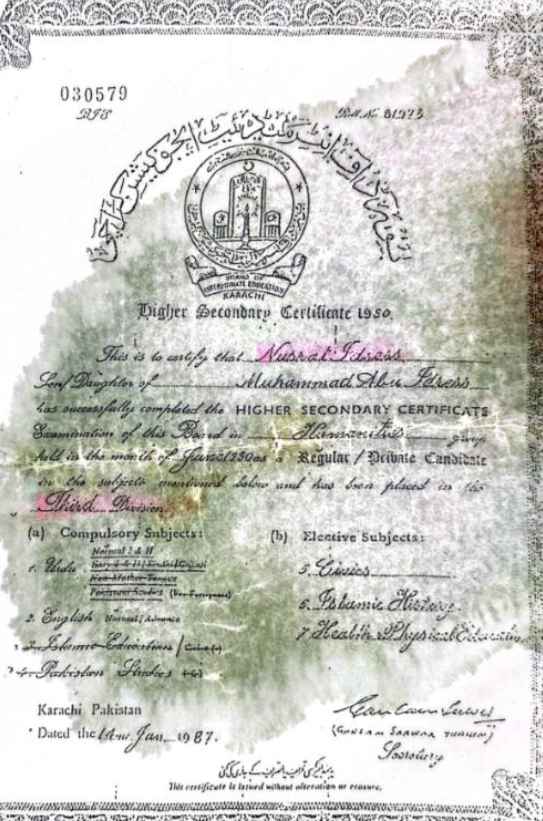 030579
BIE Roll No. 01973
بورڈ آف انٹرمیڈیٹ ایجوکیشن کراچی
BOARD OF
INTERMEDIATE EDUCATION
KARACHI
Higher Secondary Certificate 1980.
This is to certify that Nusrat Idress
Son/Daughter of Muhammad Abu Idress
has successfully completed the HIGHER SECONDARY CERTIFICATE
Examination of this Board in Humanities group
held in the month of June as a Regular / Private Candidate
in the subjects mentioned below and has been placed in the
Third Division.
(a) Compulsory Subjects: (b) Elective Subjects:
Normal I & II
1. Urdu
Non-Mother Tongue
Pakistani Studies (For Foreigners)
5. Civics
2. English Normal / Advance
6. Islamic History
3. Islamic Education /
7. Health & Physical Education
4. Pakistan Studies
Karachi Pakistan
Dated the Jan. 1987.
(GHULAM SARWAR)
Secretary
This certificate is issued without alteration or erasure.